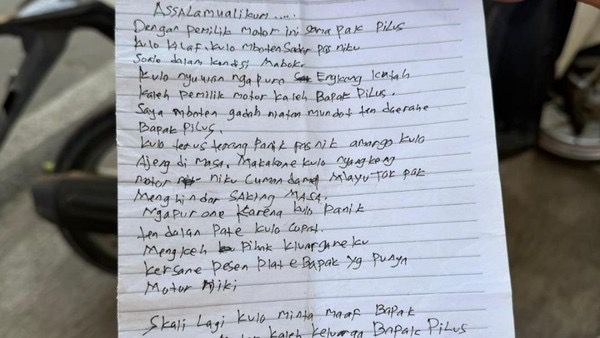 ASSALAMUALIKUM .....
Dengan pemilik motor ini sama pak Pilus
kulo kilaf. kulo mboten Sadar pas niku
Soale dalam kondisi Mabok.
Kulo nyuwun ngapuro Engkang kathah
kaleh pemilik motor kaleh Bapak Pilus.
Saya mboten gadah niatan mundot ten daerahe
Bapak Pilus.
kulo terus terang Panik pas nik amargo kulo
Ajeng di masa. Makakone kulo nyangkeng
motor niku Cuman damel Mlayu Tok pak
Menghindar SAKING MASA.
Ngapurone Karena kulo Panik
ten dalan Pate kulo Copot.
Mengkeh Pihak kluargane ku
kersane Pesen Plate Bapak yg Punya
Motor Niki
Skali Lagi kulo minta maaf Bapak
kaleh keluarga Bapak Pilus